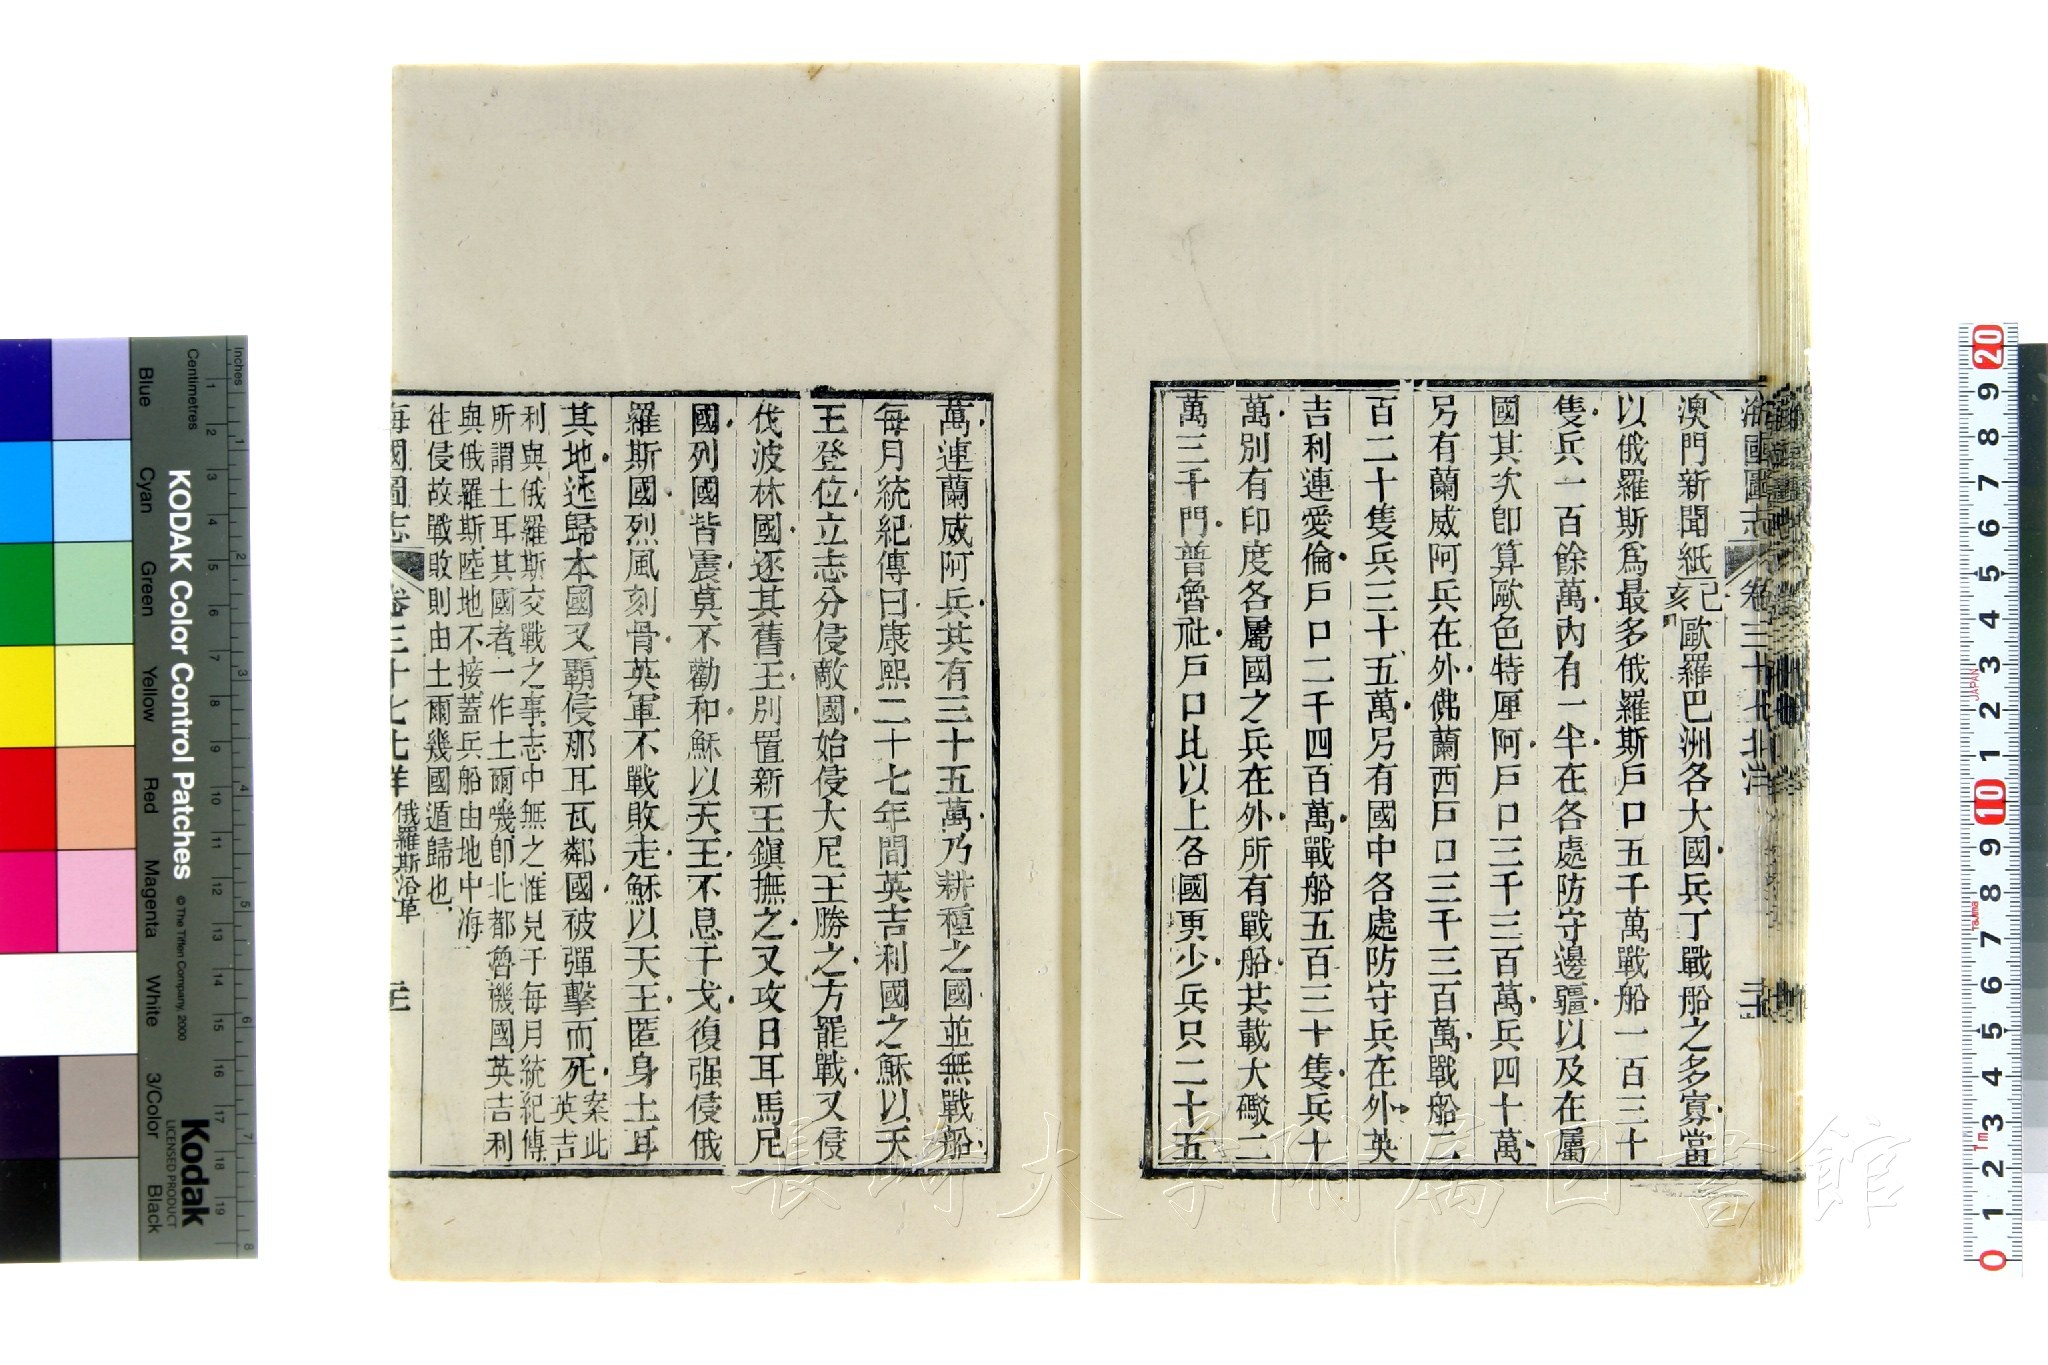 海國圖志 卷三十七 北洋
澳門新聞紙己亥歐羅巴洲各大國兵丁戰船之多寡當
以俄羅斯爲最多俄羅斯戶口五千萬戰船一百三十
隻兵一百餘萬內有一半在各處防守邊疆以及在屬
國其次卽算歐色特厘阿戶口三千三百萬兵四十萬
另有蘭威阿兵在外佛蘭西戶口三千三百萬戰船二
百二十隻兵三十五萬另有國中各處防守兵在外英
吉利連愛倫戶口二千四百萬戰船五百三十隻兵十
萬別有印度各屬國之兵在外所有戰船共載大礮二
萬三千門普魯社戶口比以上各國更少兵只二十五
萬連蘭威阿兵共有三十五萬乃耕種之國並無戰船
每月統紀傳曰康熙二十七年間英吉利國之穌以天
王登位立志分侵敵國始侵大尼王勝之方罷戰又侵
伐波林國逐其舊王別置新王鎭撫之又攻日耳馬尼
國列國皆震莫不勸和穌以天王不息干戈復强侵俄
羅斯國烈風刻骨英軍不戰敗走穌以天王匿身土耳
其地迯歸本國又覇侵那耳瓦鄰國被彈擊而死案此英吉
利與俄羅斯交戰之事志中無之惟見于每月統紀傳
所謂土耳其國者一作土爾嘰卽北都魯機國英吉利
與俄羅斯陸地不接蓋兵船由地中海
往侵故戰敗則由土爾幾國遁歸也
海國圖志 卷三十七 北洋 俄羅斯沿革
KODAK Color Control Patches
© The Tiffen Company, 2000
Kodak
LICENSED PRODUCT
Inches 1 2 3 4 5 6 7 8
Centimetres 1 2 3 4 5 6 7 8 9 10 11 12 13 14 15 16 17 18 19
Blue
Cyan
Green
Yellow
Red
Magenta
White
3/Color
Black
20 9 8 7 6 5 4 3 2 1 10 9 8 7 6 5 4 3 2 1 0
JAPAN
長崎大学附属図書館